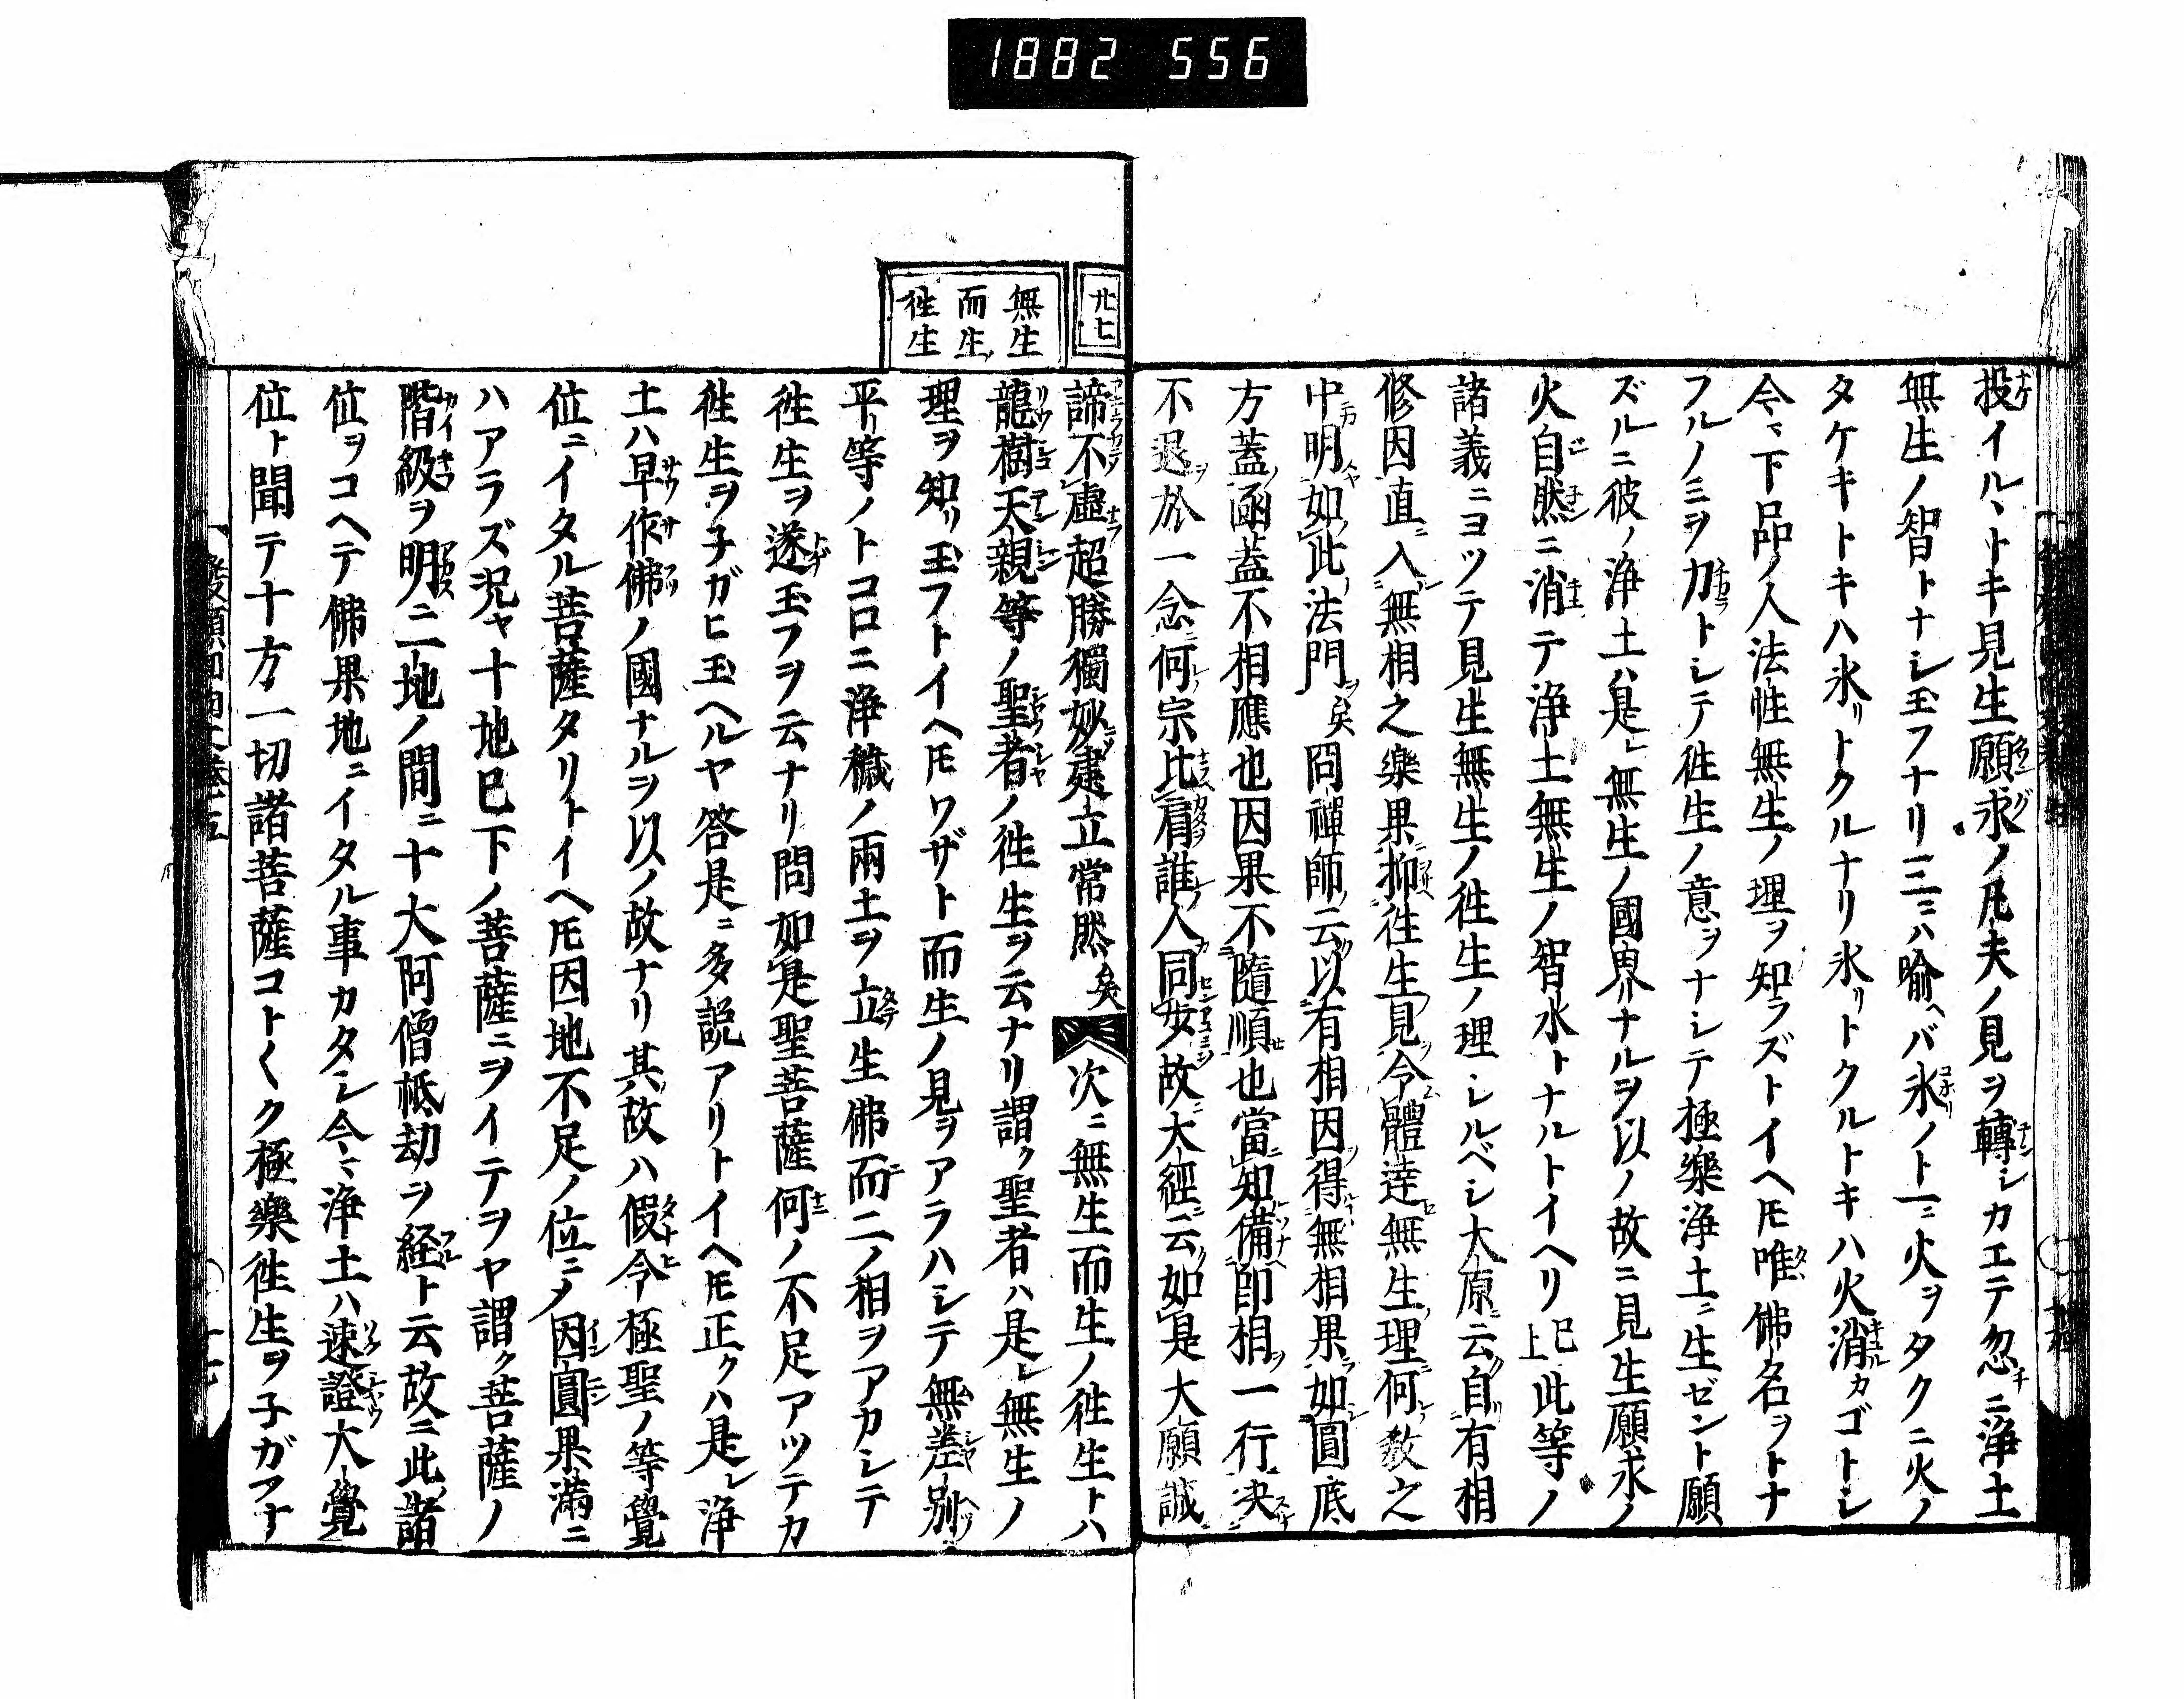 1882 556
投イルヽトキ見生願求ノ凡夫ノ見ヲ轉シカエテ忽ニ淨土
無生ノ智トナシ玉フナリ三ニハ喩ヘバ氷ノ上ニ火ヲタクニ火ノ
タケキトキハ氷リトクルナリ氷リトクルトキハ火消カゴトシ
今ヽ下品ノ人法性無生ノ理ヲ知ラズトイヘ𪜈唯佛名ヲトナ
フルノミヲ力トシテ徃生ノ意ヲナシテ極樂淨土ニ生ゼント願
ズルニ彼ノ淨土ハ是レ無生ノ國界ナルヲ以ノ故ニ見生願求ノ
火自然ニ消テ淨土無生ノ智水トナルトイヘリ已上此等ノ
諸義ニヨツテ見生無生ノ徃生ノ理シルベシ大原云自有相
修因直入無相之樂果抑徃生見令體達無生理何敎之
中明如此法門矣岡禪師云以有相因得無相果如圓底
方蓋函蓋不相應也因果不隨順也當知備即相一行決
不退於一念何宗比肩誰人同安故大經云如是大願誠
廿七
諦不虛超勝獨妙建立常然矣 次ニ無生而生ノ徃生トハ
無生
而生
徃生
龍樹天親等ノ聖者ノ徃生ヲ云ナリ謂ク聖者ハ是レ無生ノ
理ヲ知リ玉フトイヘ𪜈ワザト而生ノ見ヲアラハシテ無差別
平等ノトコロニ淨穢ノ兩土ヲ立生佛而二ノ相ヲアカシテ
徃生ヲ遂玉フヲ云ナリ問如是聖菩薩何ノ不足アツテカ
徃生ヲ子ガヒ玉ヘルヤ答是ニ多説アリトイヘ𪜈正クハ是レ淨
土ハ早作佛ノ國ナルヲ以ノ故ナリ其故ハ假令極聖ノ等覺
位ニイタル菩薩タリトイヘ𪜈因地不足ノ位ニメ因圓果滿ニ
ハアラズ況ヤ十地已下ノ菩薩ニヲイテヲヤ謂ク菩薩ノ
階級ヲ明ニ二地ノ間ニ十大阿僧柢劫ヲ経ト云故ニ此諸
位ヲコヘテ佛果地ニイタル事カタシ今ヽ淨土ハ速證大覺
位ト聞テ十方一切諸菩薩コト〱ク極樂徃生ヲ子ガフナ